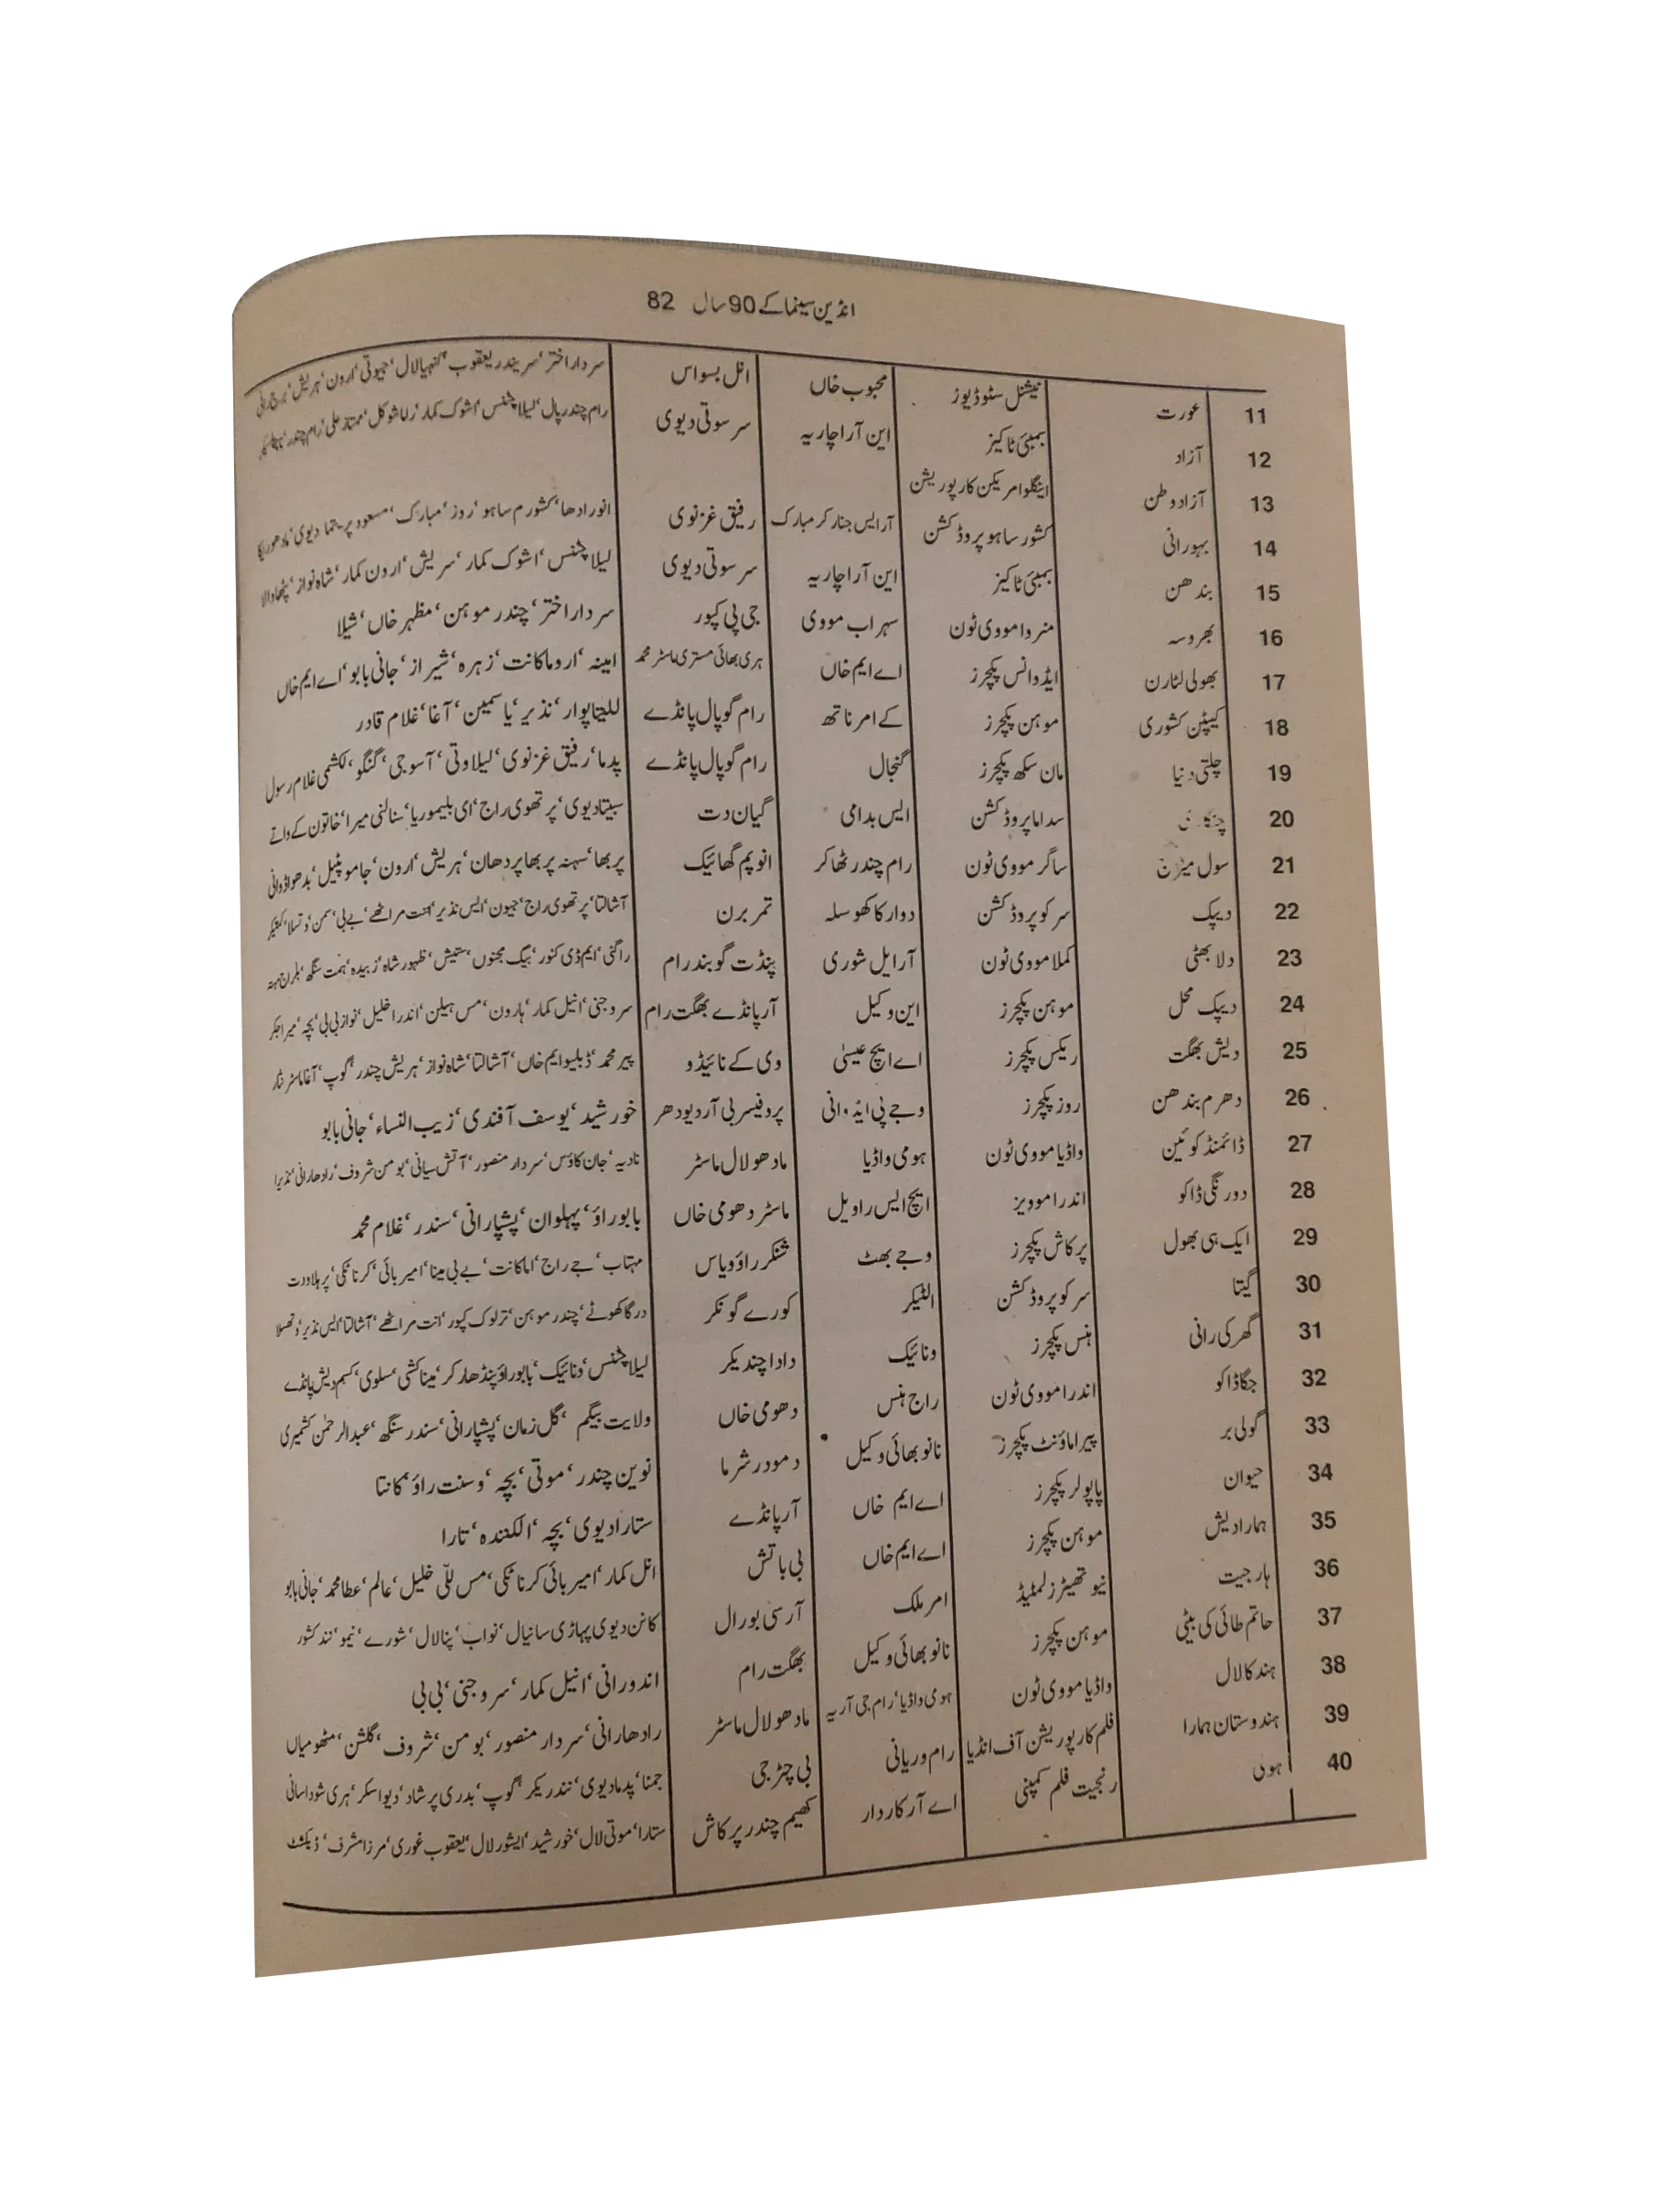 انڈین سینما کے 90 سال 82
11 عورت نیشنل سٹوڈیوز محبوب خاں انل بسواس سردار اختر‘ سریندر یعقوب‘ کنہیالال‘ جیوتی‘ ارون‘ ہریش‘
12 آزاد بمبئی ٹاکیز این آر اچاریہ سرسوتی دیوی رام چندر پال‘ لیلا چٹنس‘ اشوک کمار‘ رماشوکل‘ ممتاز علی‘ رام چندر‘
13 آزاد وطن اینگلو امریکن کارپوریشن
14 بہورانی کشور ساہو پروڈکشن آر ایس جنار کر مبارک رفیق غزنوی انورادھا‘ کشور م ساہو‘ روز‘ مبارک‘ مسعود پرتما دیوی‘
15 بندھن بمبئی ٹاکیز این آر اچاریہ سرسوتی دیوی لیلا چٹنس‘ اشوک کمار‘ سریش‘ ارون کمار‘ شاہ نواز‘ پٹھاوالا
16 بھروسہ منروا مووی ٹون سہراب مووی جی پی کپور سردار اختر‘ چندر موہن‘ مظہر خاں‘ شیلا
17 بھولی لٹارن ایڈوانس پکچرز اے ایم خاں ہری بھائی مستری ماسٹر محمد امینہ‘ اروماکانت‘ زہرہ‘ شیراز‘ جانی بابو‘ اے ایم خاں
18 کیپٹن کشوری موہن پکچرز کے امرناتھ رام گوپال پانڈے للیتا پوار‘ نذیر‘ یاسمین‘ آغا‘ غلام قادر
19 چلتی دنیا مان سکھ پکچرز گنجال رام گوپال پانڈے پدما‘ رفیق غزنوی‘ لیلاوتی‘ آسوجی‘ گنگو‘ لکشمی غلام رسول
20 سداما پروڈکشن ایس بدامی گیان دت سیتادیوی‘ پرتھوی راج‘ ای بلیموریا‘ سنالنی میرا‘ خاتون کے داتے
21 سول میرج ساگر مووی ٹون رام چندر ٹھاکر انوپم گھائیک پربھا‘ سہنہ پربھاپردھان‘ ہریش‘ ارون‘ جامو پٹیل‘ بدھو اڈوانی
22 دیپک سرکو پروڈکشن دوارکا کھوسلہ تمربرن آشالتا‘ پرتھوی راج‘ جیون‘ ایس نذیر‘ انت مراٹھے‘ بے بی‘ سمن‘ وتسلا‘
23 دلا بھٹی کملا مووی ٹون آر ایل شوری پنڈت گوبند رام راگنی‘ ایم ڈی کنور‘ بیگ مجنوں‘ ستیش‘ ظہور شاہ‘ زبیدہ‘ ہمت سنگھ‘ بلراج مہتہ
24 دیپک محل موہن پکچرز این وکیل آر پانڈے بھگت رام سروجنی‘ انیل کمار‘ ہارون‘ مس ہیلن‘ اندرا خلیل‘ نواز بی بی‘ بچہ‘ میراجکر
25 دیش بھگت ریکس پکچرز اے ایچ عیسیٰ وی کے نائیڈو پیر محمد‘ ڈبلیو ایم خاں‘ آشالتا‘ شاہ نواز‘ ہریش چندر‘ گوپ‘ آغا ماسٹر نثار
26 دھرم بندھن روز پکچرز وجے پی ایڈوانی پروفیسر بی آر دیودھر خورشید‘ یوسف آفندی‘ زیب النساء‘ جانی بابو
27 ڈائمنڈ کوئین واڈیا مووی ٹون ہومی واڈیا مادھولال ماسٹر نادیہ‘ جان کاؤس‘ سردار منصور‘ آتش سیانی‘ بومن شروف‘ رادھارانی‘ نذیرا
28 دورنگی ڈاکو اندرا موویز ایچ ایس راویل ماسٹر دھومی خاں بابوراؤ‘ پہلوان‘ پشپارانی‘ سندر‘ غلام محمد
29 ایک ہی بھول پرکاش پکچرز وجے بھٹ شنکر راؤ ویاس مہتاب‘ جے راج‘ اماکانت‘ بے بی مینا‘ امیر بائی‘ کرناٹکی‘ پرہلاد دت
30 گیتا سرکو پروڈکشن الٹیکر کورے گونکر درگا کھوٹے‘ چندر موہن‘ ترلوک کپور‘ انت مراٹھے‘ آشالتا‘ ایس نذیر‘ وتھسلا
31 گھر کی رانی ہنس پکچرز ونائیک دادا چندیکر لیلا چٹنس‘ ونائیک‘ بابوراؤ پنڈھارکر‘ میناکشی‘ سلوی‘ کسم دیش پانڈے
32 جگا ڈاکو اندرا مووی ٹون راج ہنس دھومی خاں ولایت بیگم‘ گل زمان‘ پشپارانی‘ سندر سنگھ‘ عبدالرحمٰن کشمیری
33 گولی بر پیراماؤنٹ پکچرز نانو بھائی وکیل دمودر شرما نوین چندر‘ موتی‘ بچہ‘ وسنت راؤ‘ کانتا
34 حیوان پاپولر پکچرز اے ایم خاں آر پانڈے ستارا دیوی‘ بچہ‘ الکنندہ‘ تارا
35 ہمارا دیش موہن پکچرز اے ایم خاں بی باتش انل کمار‘ امیر بائی کرناٹکی‘ مس للّی خلیل‘ عالم‘ عطا محمد‘ جانی بابو
36 ہار جیت نیو تھیٹرز لمٹیڈ امر ملک آر سی بورال کانن دیوی پہاڑی سانیال‘ نواب‘ پنالال‘ شورے‘ نیمو‘ نند کشور
37 حاتم طائی کی بیٹی موہن پکچرز نانو بھائی وکیل بھگت رام اندورانی‘ انیل کمار‘ سروجنی‘ بی بی
38 ہند کا لال واڈیا مووی ٹون ہومی واڈیا‘ رام جی آریہ مادھولال ماسٹر رادھارانی‘ سردار منصور‘ بومن‘ شروف‘ گلشن‘ مٹھو میاں
39 ہندوستان ہمارا فلم کارپوریشن آف انڈیا رام دریانی بی چٹرجی جمنا‘ پدمادیوی‘ نندریکر‘ گوپ‘ بدری پرشاد‘ دیواسکر‘ ہری شوداسانی
40 ہولی رنجیت فلم کمپنی اے آر کاردار کھیم چندر پرکاش ستارا‘ موتی لال‘ خورشید‘ ایشورلال‘ یعقوب غوری‘ مرزا مشرف‘ ڈیکشٹ